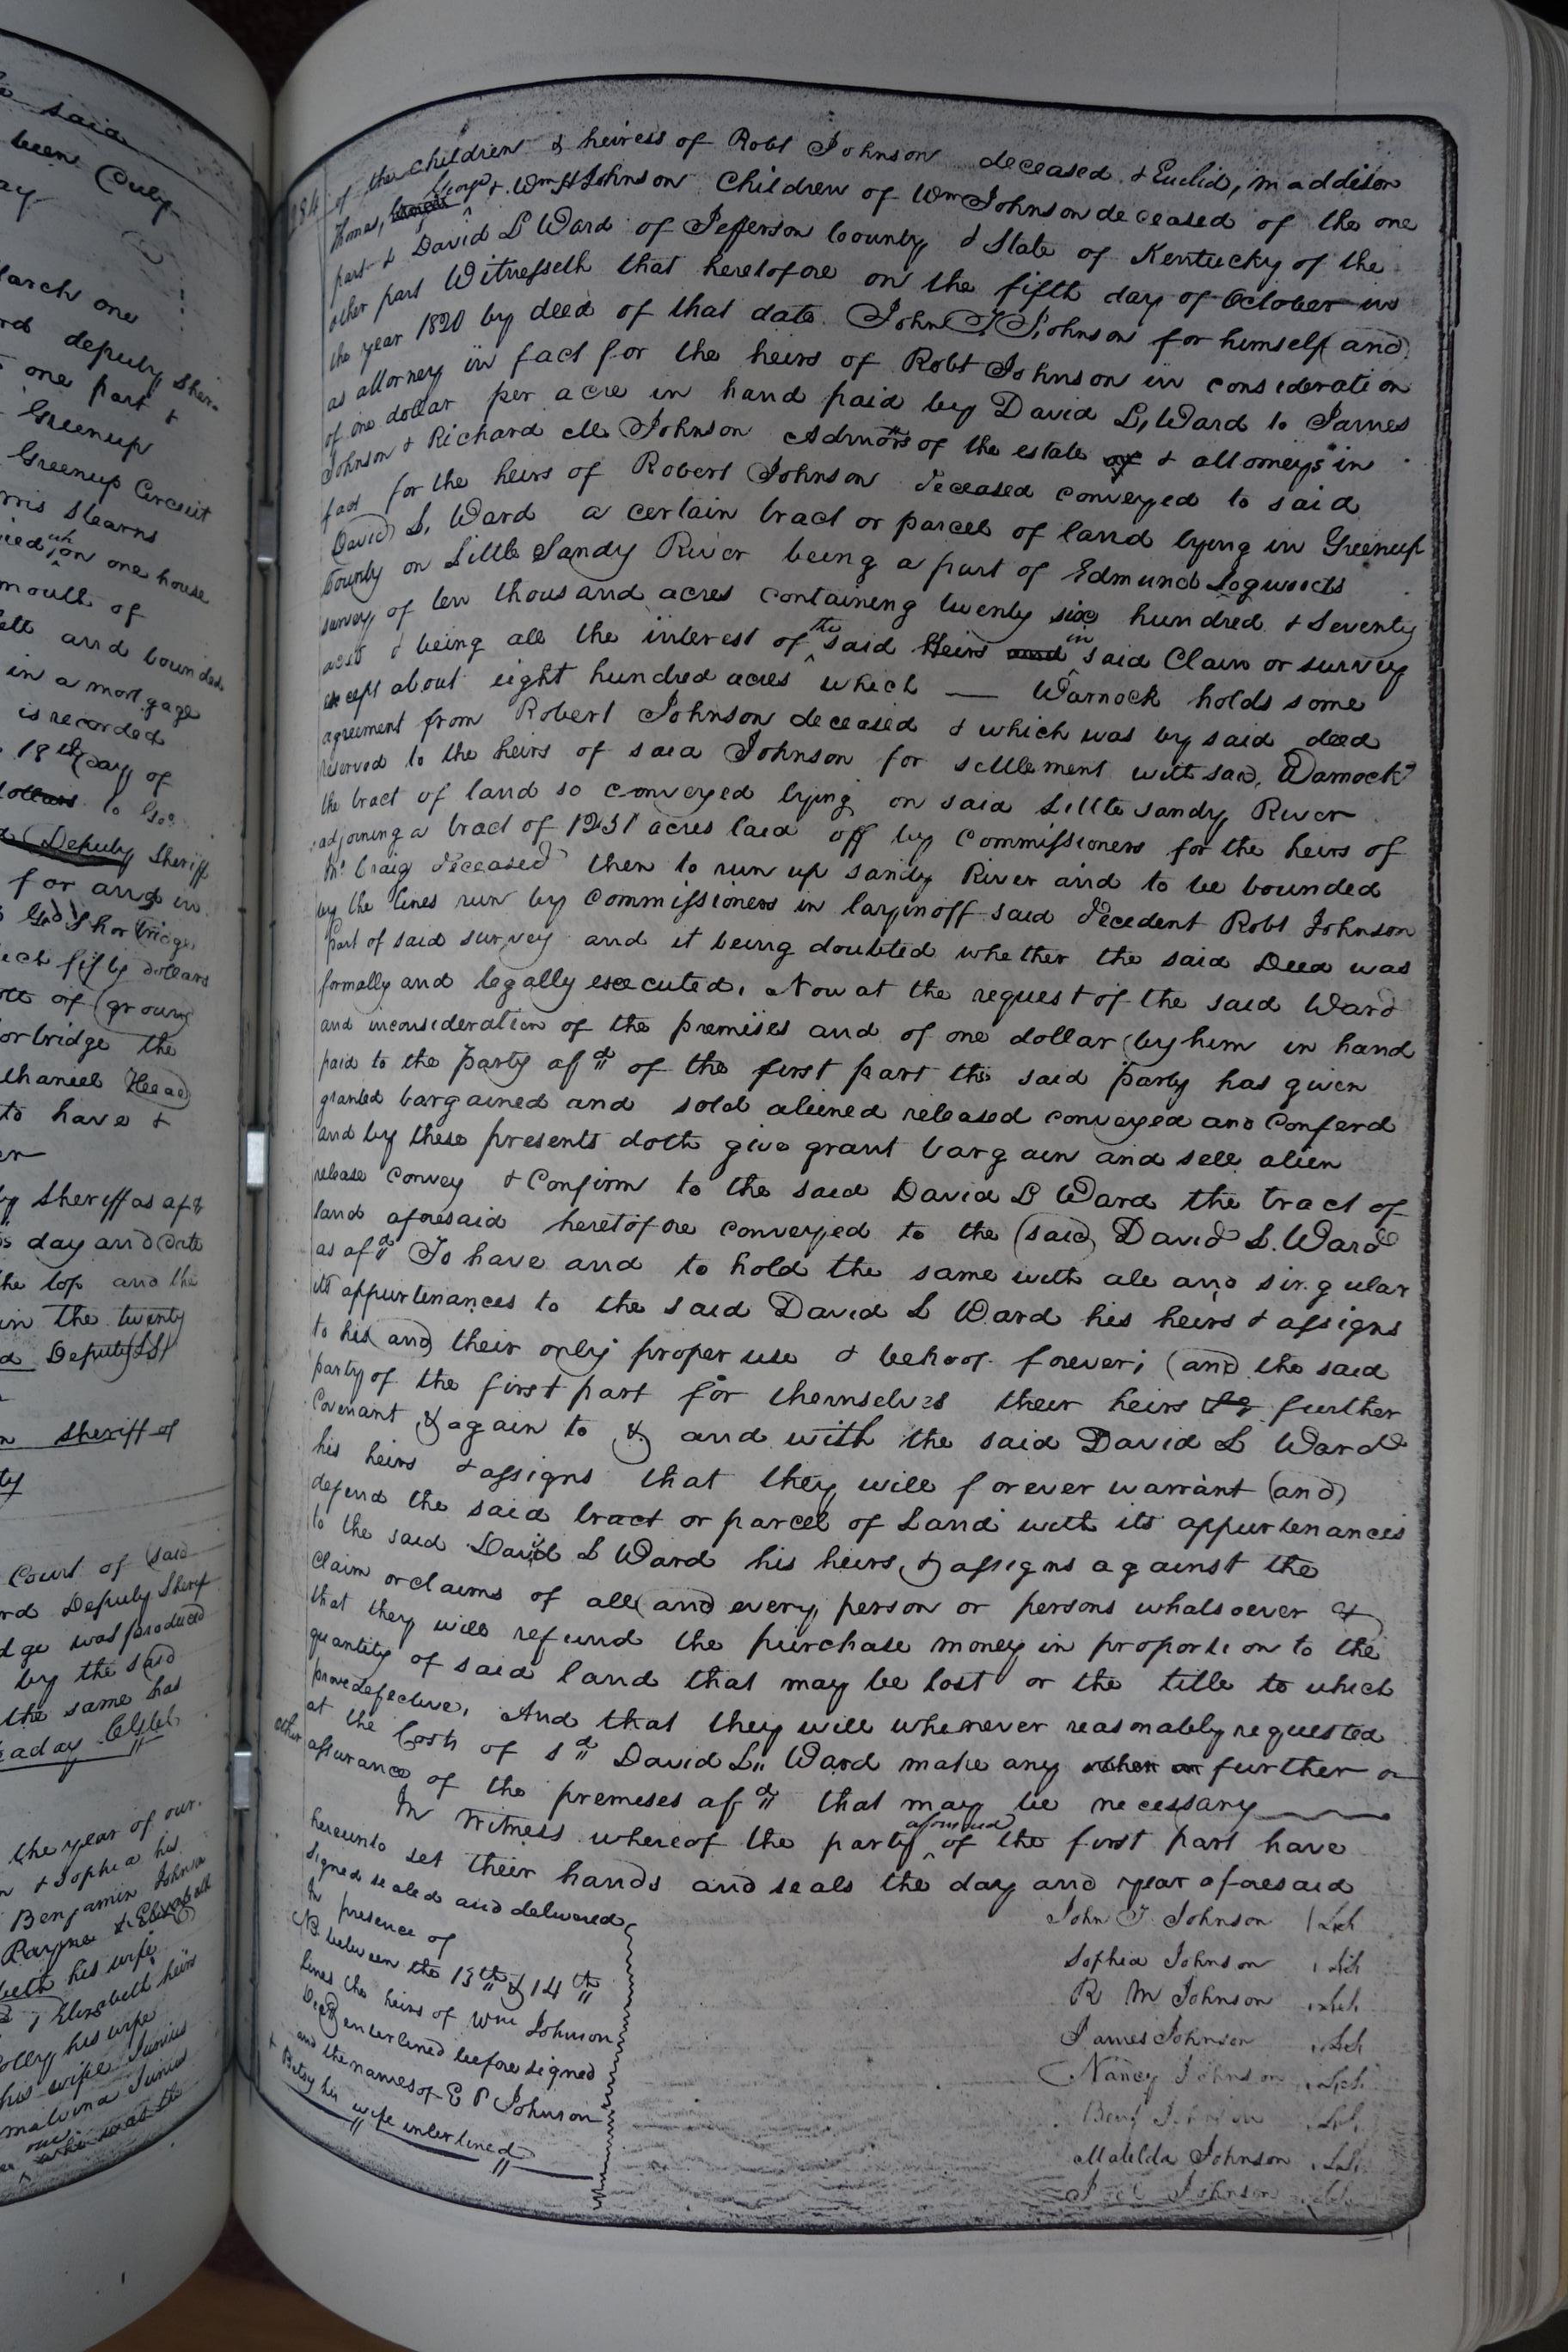 saia
been
ay
March one
rd deputy Sher-
one part &
Greenup
Greenup Circuit
rris Stearns
on one house
mouth of
and bounded
in a mortgage
is recorded
18th day of
dollars to Geo.
Deputy Sheriff
for and in
Shortridge
ech fifty dollars
of ground
ortridge the
thaniel Head
to have &
Sheriff as afd
day and date
the top and the
in the twenty
Deputy
Sheriff of
Court of said
rd Deputy Sheriff
dge was produced
by the said
the same has
the year of our
& Sophia his
Benjamin Johnson
Payne &
beth his wife
Elizabeth heirs
olly his wife
his wife Junius
malvina Junius
284 of the children & heiress of Robt Johnson deceased & Euclid, Maddison
Thomas, George & Wm H Johnson Children of Wm Johnson deceased of the one
part & David L Ward of Jefferson County & State of Kentucky of the
other part Witnesseth that heretofore on the fifth day of October in
the year 1820 by deed of that date John T Johnson for himself and
as attorney in fact for the heirs of Robt Johnson in consideration
of one dollar per acre in hand paid by David L, Ward to James
Johnson & Richard M Johnson Admors of the estate of & attorneys in
fact for the heirs of Robert Johnson deceased conveyed to said
David L. Ward a certain tract or parcel of land lying in Greenup
County on Little Sandy River being a part of Edmund
survey of ten thousand acres containing twenty six hundred & seventy
acres & being all the interest of the said Heirs and in said Claim or survey
except about eight hundred acres which — Warnock holds some
agreement from Robert Johnson deceased & which was by said deed
reserved to the heirs of said Johnson for settlement with said Warnock
the tract of land so conveyed lying on said Little Sandy River
adjoining a tract of acres laid off by Commissioners for the heirs of
Craig deceased then to run up Sandy River and to be bounded
by the lines run by Commissioners in layin off said decedent Robt Johnson
part of said survey and it being doubted whether the said Deed was
formally and legally executed. Now at the request of the said Ward
and inconsideration of the premises and of one dollar by him in hand
paid to the party afd of the first part the said party has given
granted bargained and sold aliened released conveyed and Conferd
and by these presents doth give grant bargain and sell alien
release convey & Confirm to the said David L Ward the tract of
land aforesaid heretofore conveyed to the said David L. Ward
as afd To have and to hold the same with all and singular
its appurtenances to the said David L Ward his heirs & assigns
to his and their only proper use & behoof forever; and the said
party of the first part for themselves their heirs further
Covenant & again to & and with the said David L Ward
his heirs & assigns that they will forever warrant and
defend the said tract or parcel of Land with its appurtenances
to the said David L Ward his heirs & assigns against the
Claim or claims of all and every person or persons whatsoever &
that they will refund the purchase money in proportion to the
quantity of said land that may be lost or the title to which
prove defective. And that they will whenever reasonably requested
at the Costs of sd David L. Ward make any other or further or
other assurance of the premises afd that may be necessary
In Witness whereof the party aforesaid of the first part have
hereunto set their hands and seals the day and year aforesaid
Signed sealed and delivered
In presence of
NB between the 13th & 14th
lines the heirs of Wm Johnson
Decd enterlined before signed
and the names of E P Johnson
& Betsy his wife enterlined
John T. Johnson
Sophia Johnson
R M Johnson
James Johnson
Nancy Johnson
Benj Johnson
Matilda Johnson
Johnson